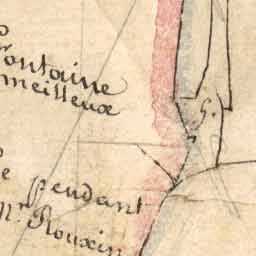 Fontaine
meilleux
G.
pendant
Mr. Rouxin